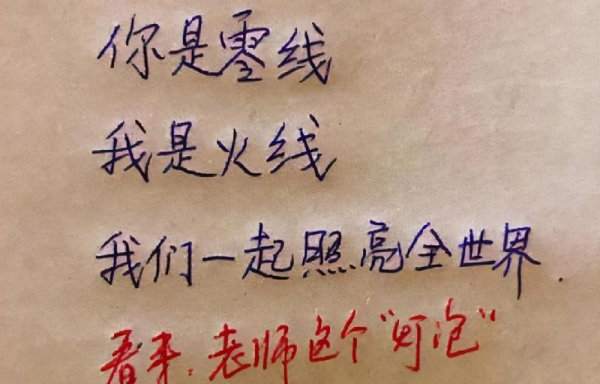 你是零线
我是火线
我们一起照亮全世界.
看来.老师这个"灯泡"